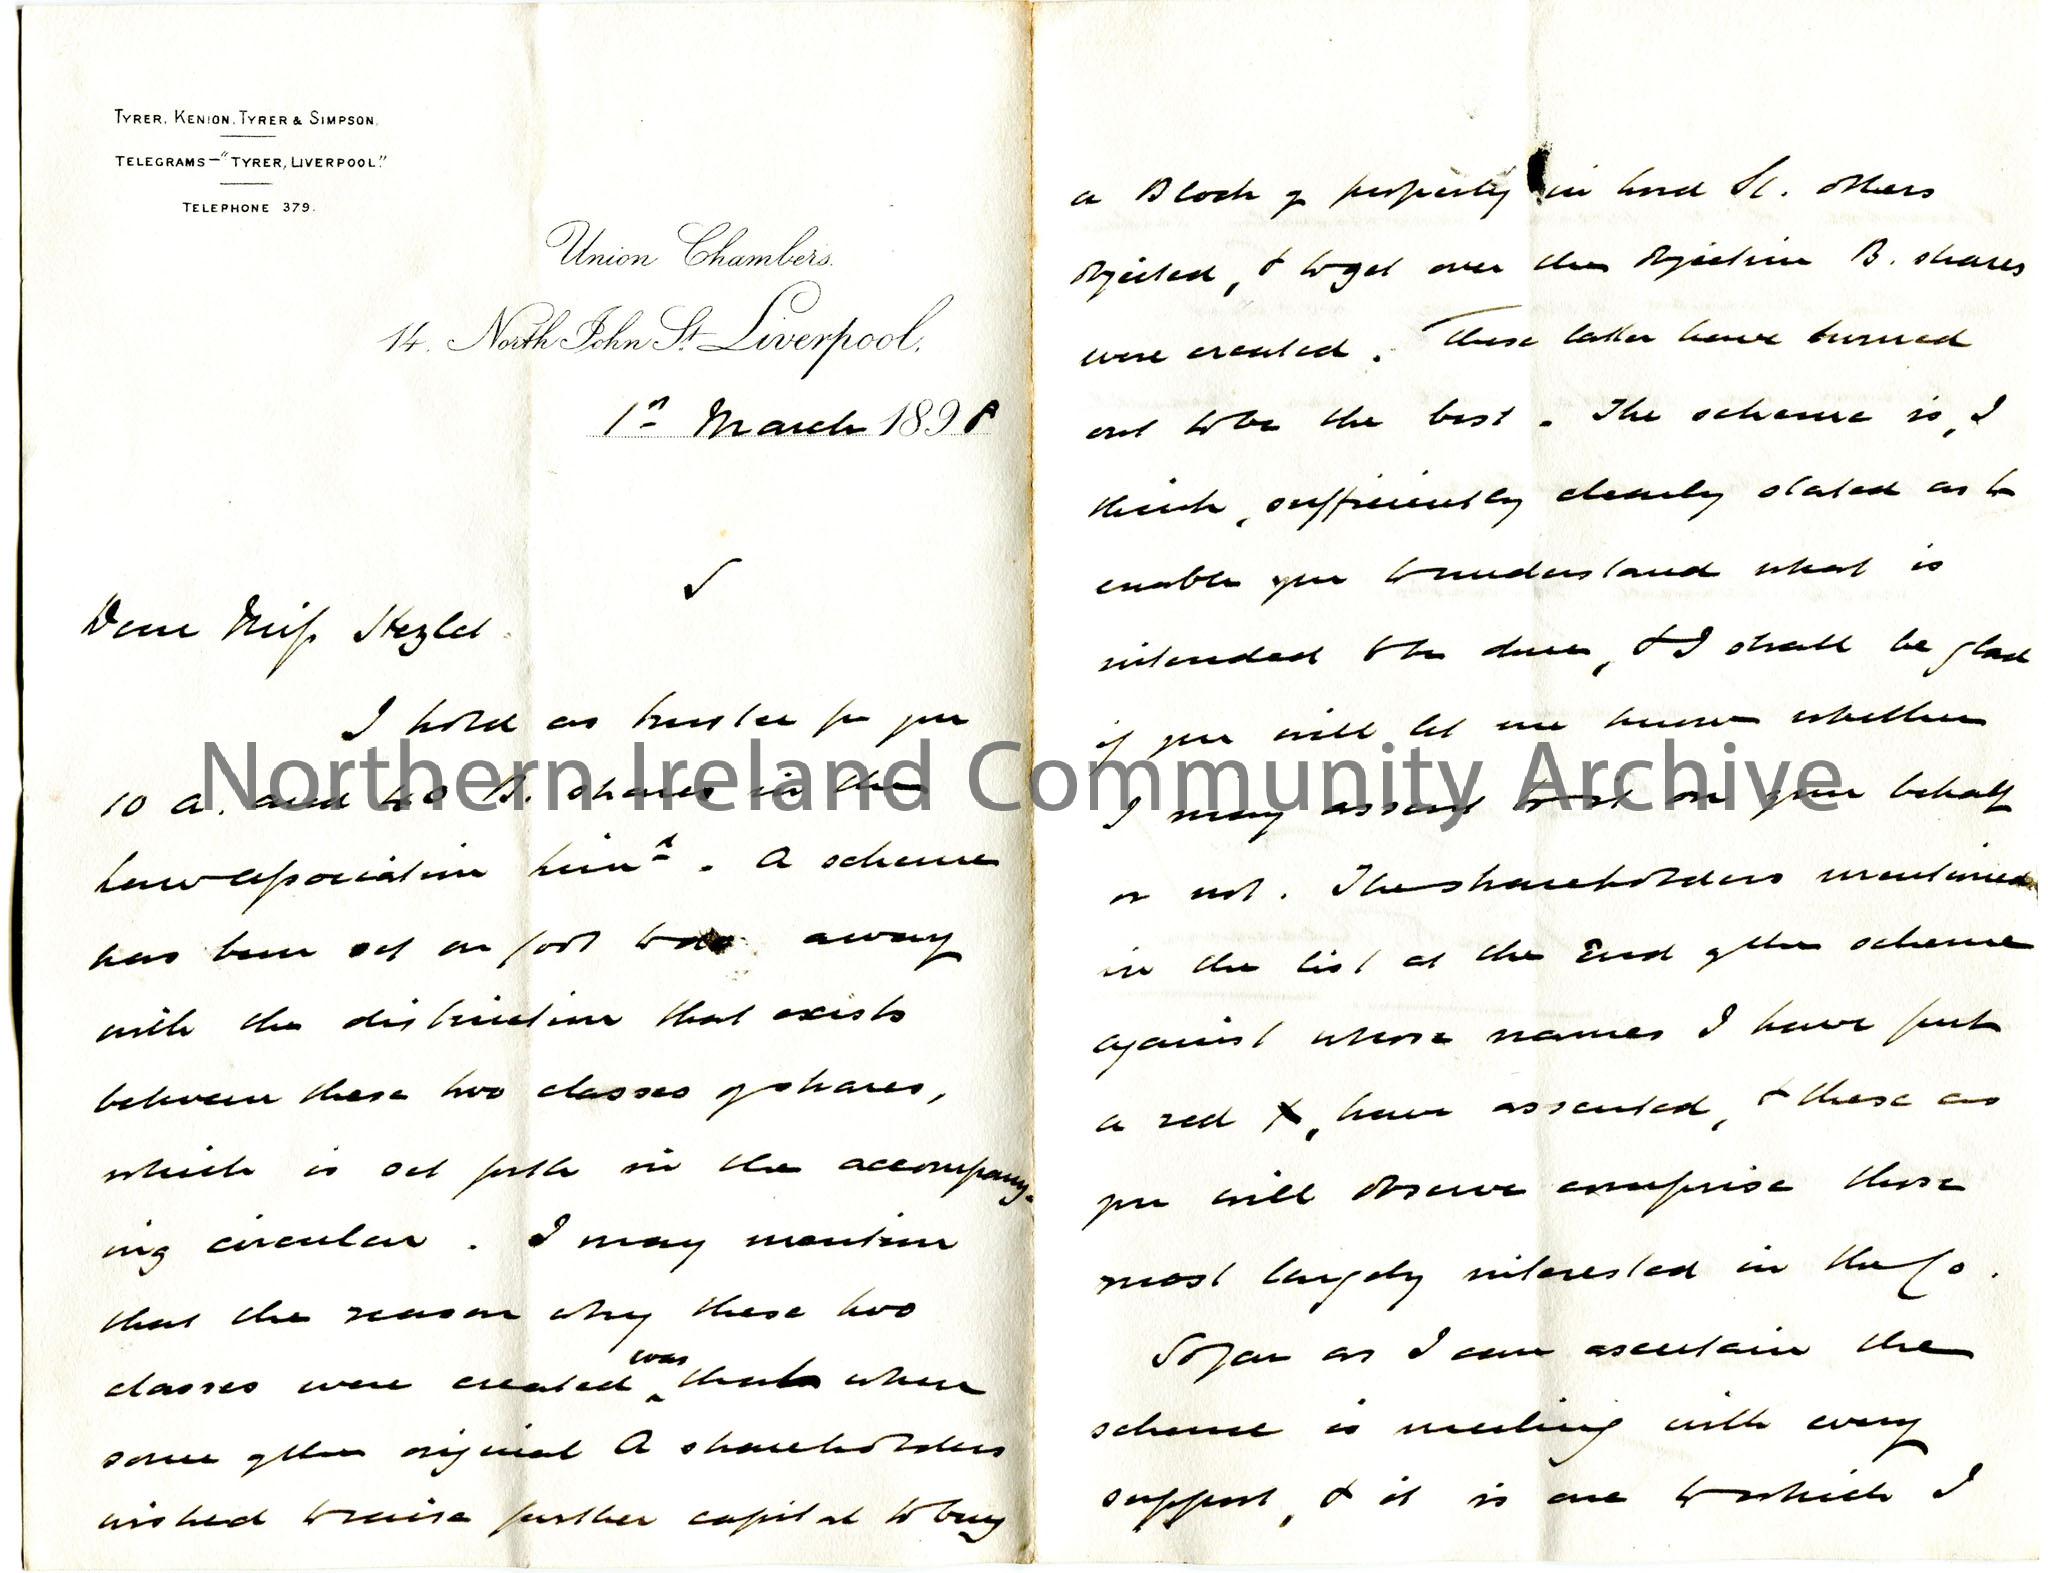 TYRER, KENION, TYRER & SIMPSON.
TELEGRAMS—"TYRER, LIVERPOOL."
TELEPHONE 379.
Union Chambers.
14. North John St. Liverpool.
1st March 1898
Dear Miss Hezlet
I hold as trustee for you
10 A. and 40 B. shares in the
Law Association Limd. A scheme
has been set on foot to do away
with the distinction that exists
between these two classes of shares,
which is set forth in the accompany-
ing circular. I may mention
that the reason why these two
classes were created was that when
some of the original A shareholders
wished to raise further capital to buy
a Block of property in Lord St. others
objected, & to get over the objection B. shares
were created. These latter have turned
out to be the best. The scheme is, I
think, sufficiently clearly stated as to
enable you to understand what is
intended to be done, & I shall be glad
if you will let me know whether
I may assent to it on your behalf
or not. The shareholders mentioned
in the list at the End of the scheme
against whose names I have put
a red X, have assented, & these as
you will observe comprise those
most largely interested in the Co.
So far as I can ascertain the
scheme is meeting with every
support, & it is one to which I
Northern Ireland Community Archive